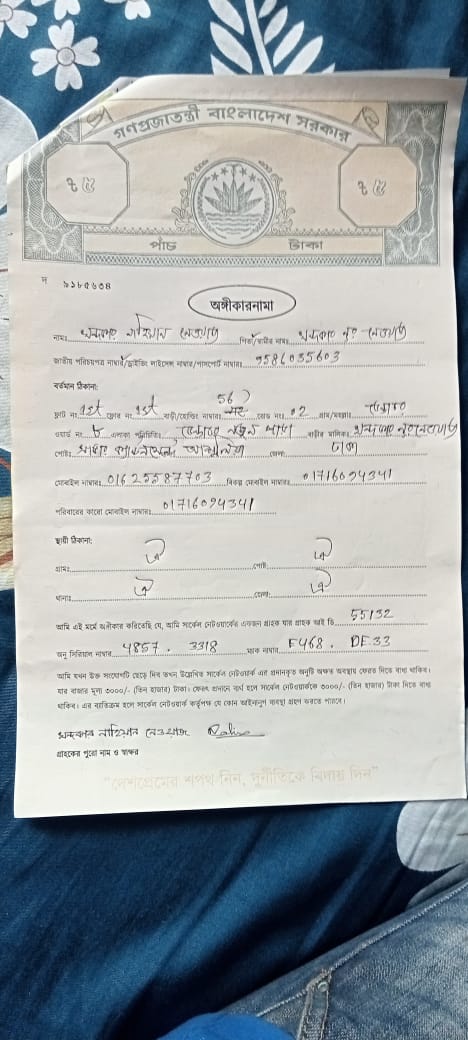 গণপ্রজাতন্ত্রী বাংলাদেশ সরকার
৳ ৫ ৳ ৫
পাঁচ টাকা
অঙ্গীকারনামা
নাম: খন্দকার নাহিয়ান নেওয়াজ পিতা/স্বামীর নাম: খন্দকার নূর নেওয়াজ
জাতীয় পরিচয়পত্র নাম্বার/ড্রাইভিং লাইসেন্স নাম্বার/পাসপোর্ট নাম্বার: 9586035603
বর্তমান ঠিকানা:
ফ্ল্যাট নং 1st ফ্লোর নং 1st বাড়ী/হোল্ডিং নাম্বার: 56 রোড নং: 02 গ্রাম/মহল্লা:
ওয়ার্ড নং ৮ এলাকা বাড়ীর মালিক: খন্দকার নূর নেওয়াজ
পোষ্ট: জেলা: ঢাকা
মোবাইল নাম্বার: 01625587703 বিকল্প মোবাইল নাম্বার: 01716094341
পরিবারের কারো মোবাইল নাম্বার: 01716094341
স্থায়ী ঠিকানা:
গ্রাম: ঐ পোষ্ট: ঐ
থানা: ঐ জেলা: ঐ
আমি এই মর্মে অঙ্গীকার করিতেছি যে, আমি সার্কেল নেটওয়ার্কের একজন গ্রাহক যার গ্রাহক আই ডি 55132
অনু সিরিয়াল নাম্বার 4857. 3318 ম্যাক নাম্বার F468. DE33
আমি যখন উক্ত সংযোগটি ছেড়ে দিব তখন উল্লেখিত সার্কেল নেটওয়ার্ক এর প্রদানকৃত অনুটি অক্ষত অবস্থায় ফেরত দিতে বাধ্য থাকিব।
যার বাজার মূল্য ৩০০০/- (তিন হাজার) টাকা। ফেরৎ প্রদানে ব্যর্থ হলে সার্কেল নেটওয়ার্ককে ৩০০০/- (তিন হাজার) টাকা দিতে বাধ্য
থাকিব। এর ব্যতিক্রম হলে সার্কেল নেটওয়ার্ক কর্তৃপক্ষ যে কোন আইনানুগ ব্যবস্থা গ্রহণ করতে পারবে।
খন্দকার নাহিয়ান নেওয়াজ
গ্রাহকের পুরো নাম ও স্বাক্ষর
"দেশপ্রেমের শপথ নিন, দুর্নীতিকে বিদায় দিন"